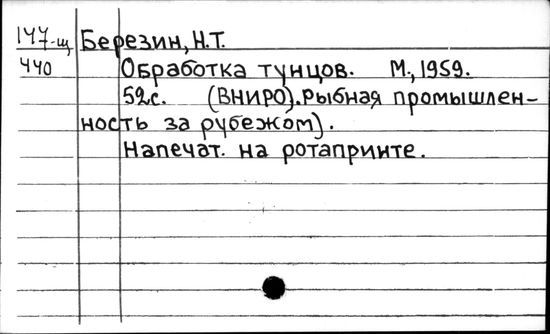 147-щ Березин, Н.Т.
440 Обработка тунцов. М., 1959.
52с. (ВНИРО). Рыбная промышлен-
ность за рубежом).
Напечат. на ротапринте.